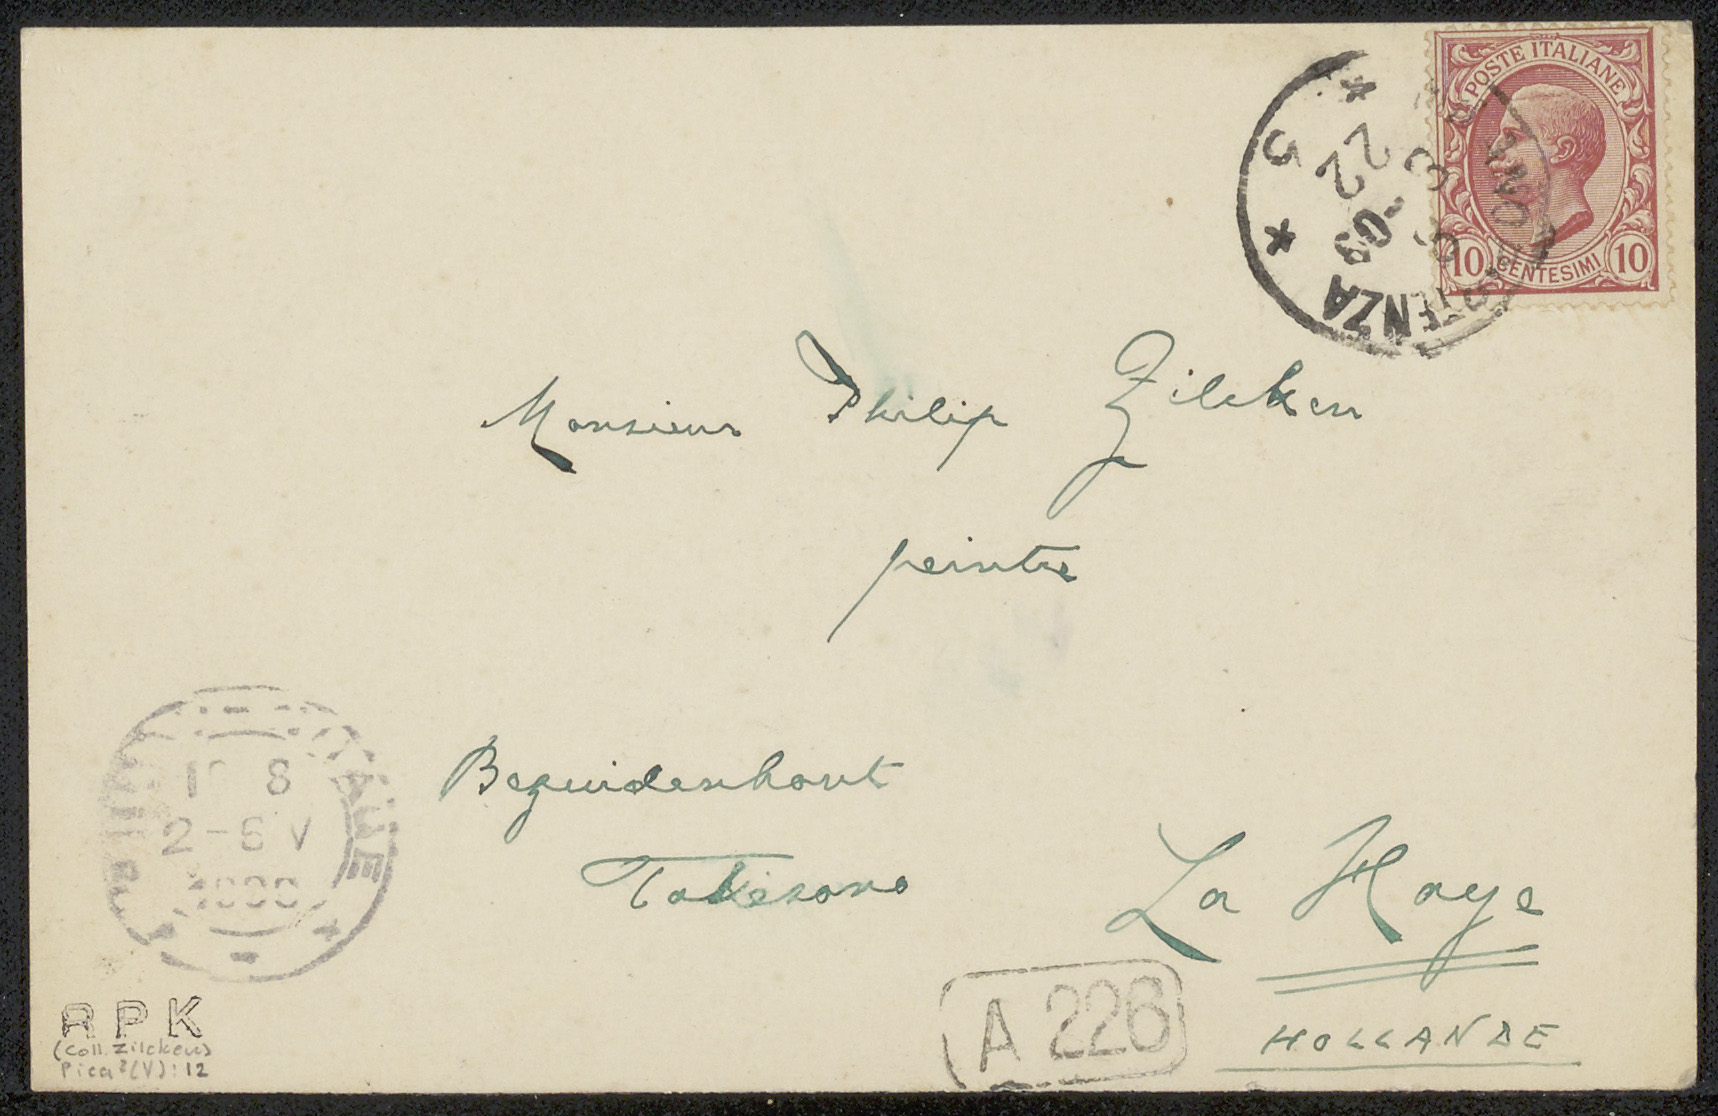 POSTE ITALIANE
10 CENTESIMI 10
5
22
-09
Monsieur Philip Zilcken
peintre
Bezuidenhout
La Haye
HOLLANDE
8
2-6 V
A 226
RPK
(coll. Zilcken)
Pica²(V):12